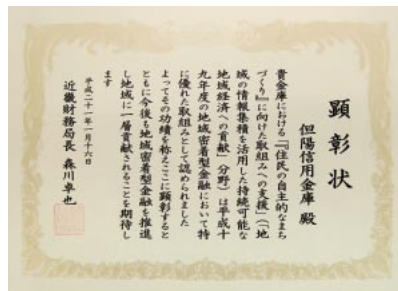 顕彰状
但陽信用金庫 殿
貴金庫における『住民の自主的なまち
づくり』に向けた取組みへの支援」(「地
域の情報集積を活用した持続可能な
地域経済への貢献」分野)は平成十
九年度の地域密着型金融において特
に優れた取組みとして認められました
よってその功績を称えここに顕彰すると
ともに今後も地域密着型金融を推進
し地域に一層貢献されることを期待し
ます
平成二十一年一月十六日
近畿財務局長 森川卓也